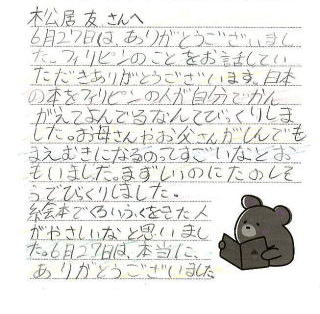 松居 友 さんへ
6月27日は、ありがとうございまし
た。フィリピンのことをお話してい
ただきありがとうございます。日本
の本をフィリピンの人が自分でかん
がえてよんでるなんてびっくりしま
した。お母さんやお父さんがしんでも
まえむきになるのってすごいなとお
もいました。まずしいのにたのしそ
うでびっくりしました。
絵本でくろいふくをきた人
がやさしいなと思いまし
た。6月27日は、本当に、
ありがとうございました